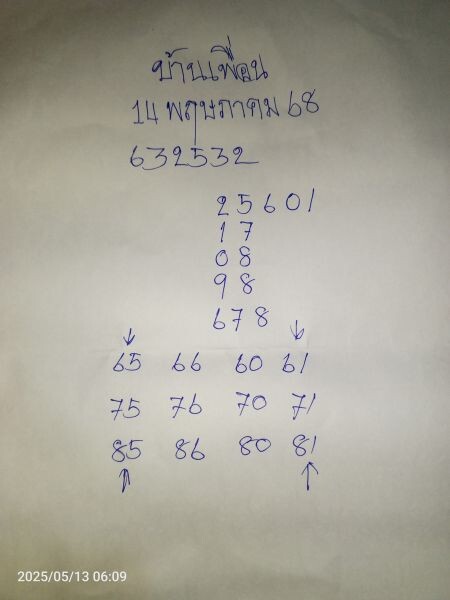 บ้านเพื่อน
14 พฤษภาคม 68
632532
25601
17
08
98
678
65 66 60 61
75 76 70 71
85 86 80 81
2025/05/13 06:09